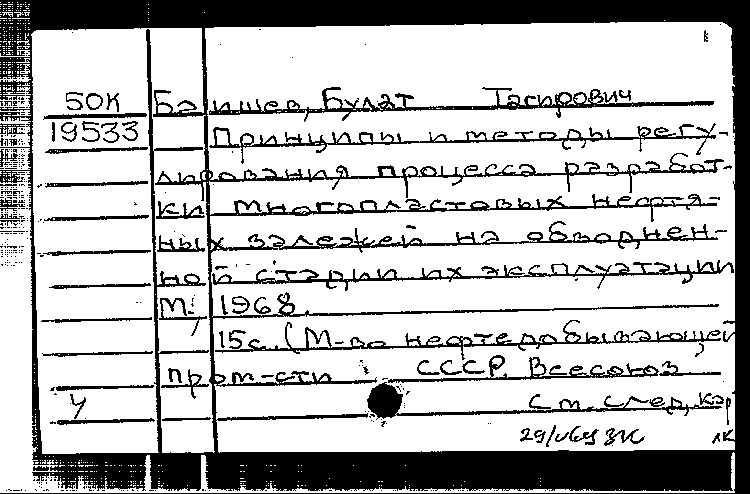 50К Баишев, Булат Тагирович
19533 Принципы и методы регу-
лирования процесса разработ-
ки многопластовых нефтя-
ных залежей на обводнен-
ной стадии их эксплуатации
М., 1968.
15с. (М-во нефтедобывающей
пром-сти СССР. Всесоюз
У См. след. кар
29/
лк